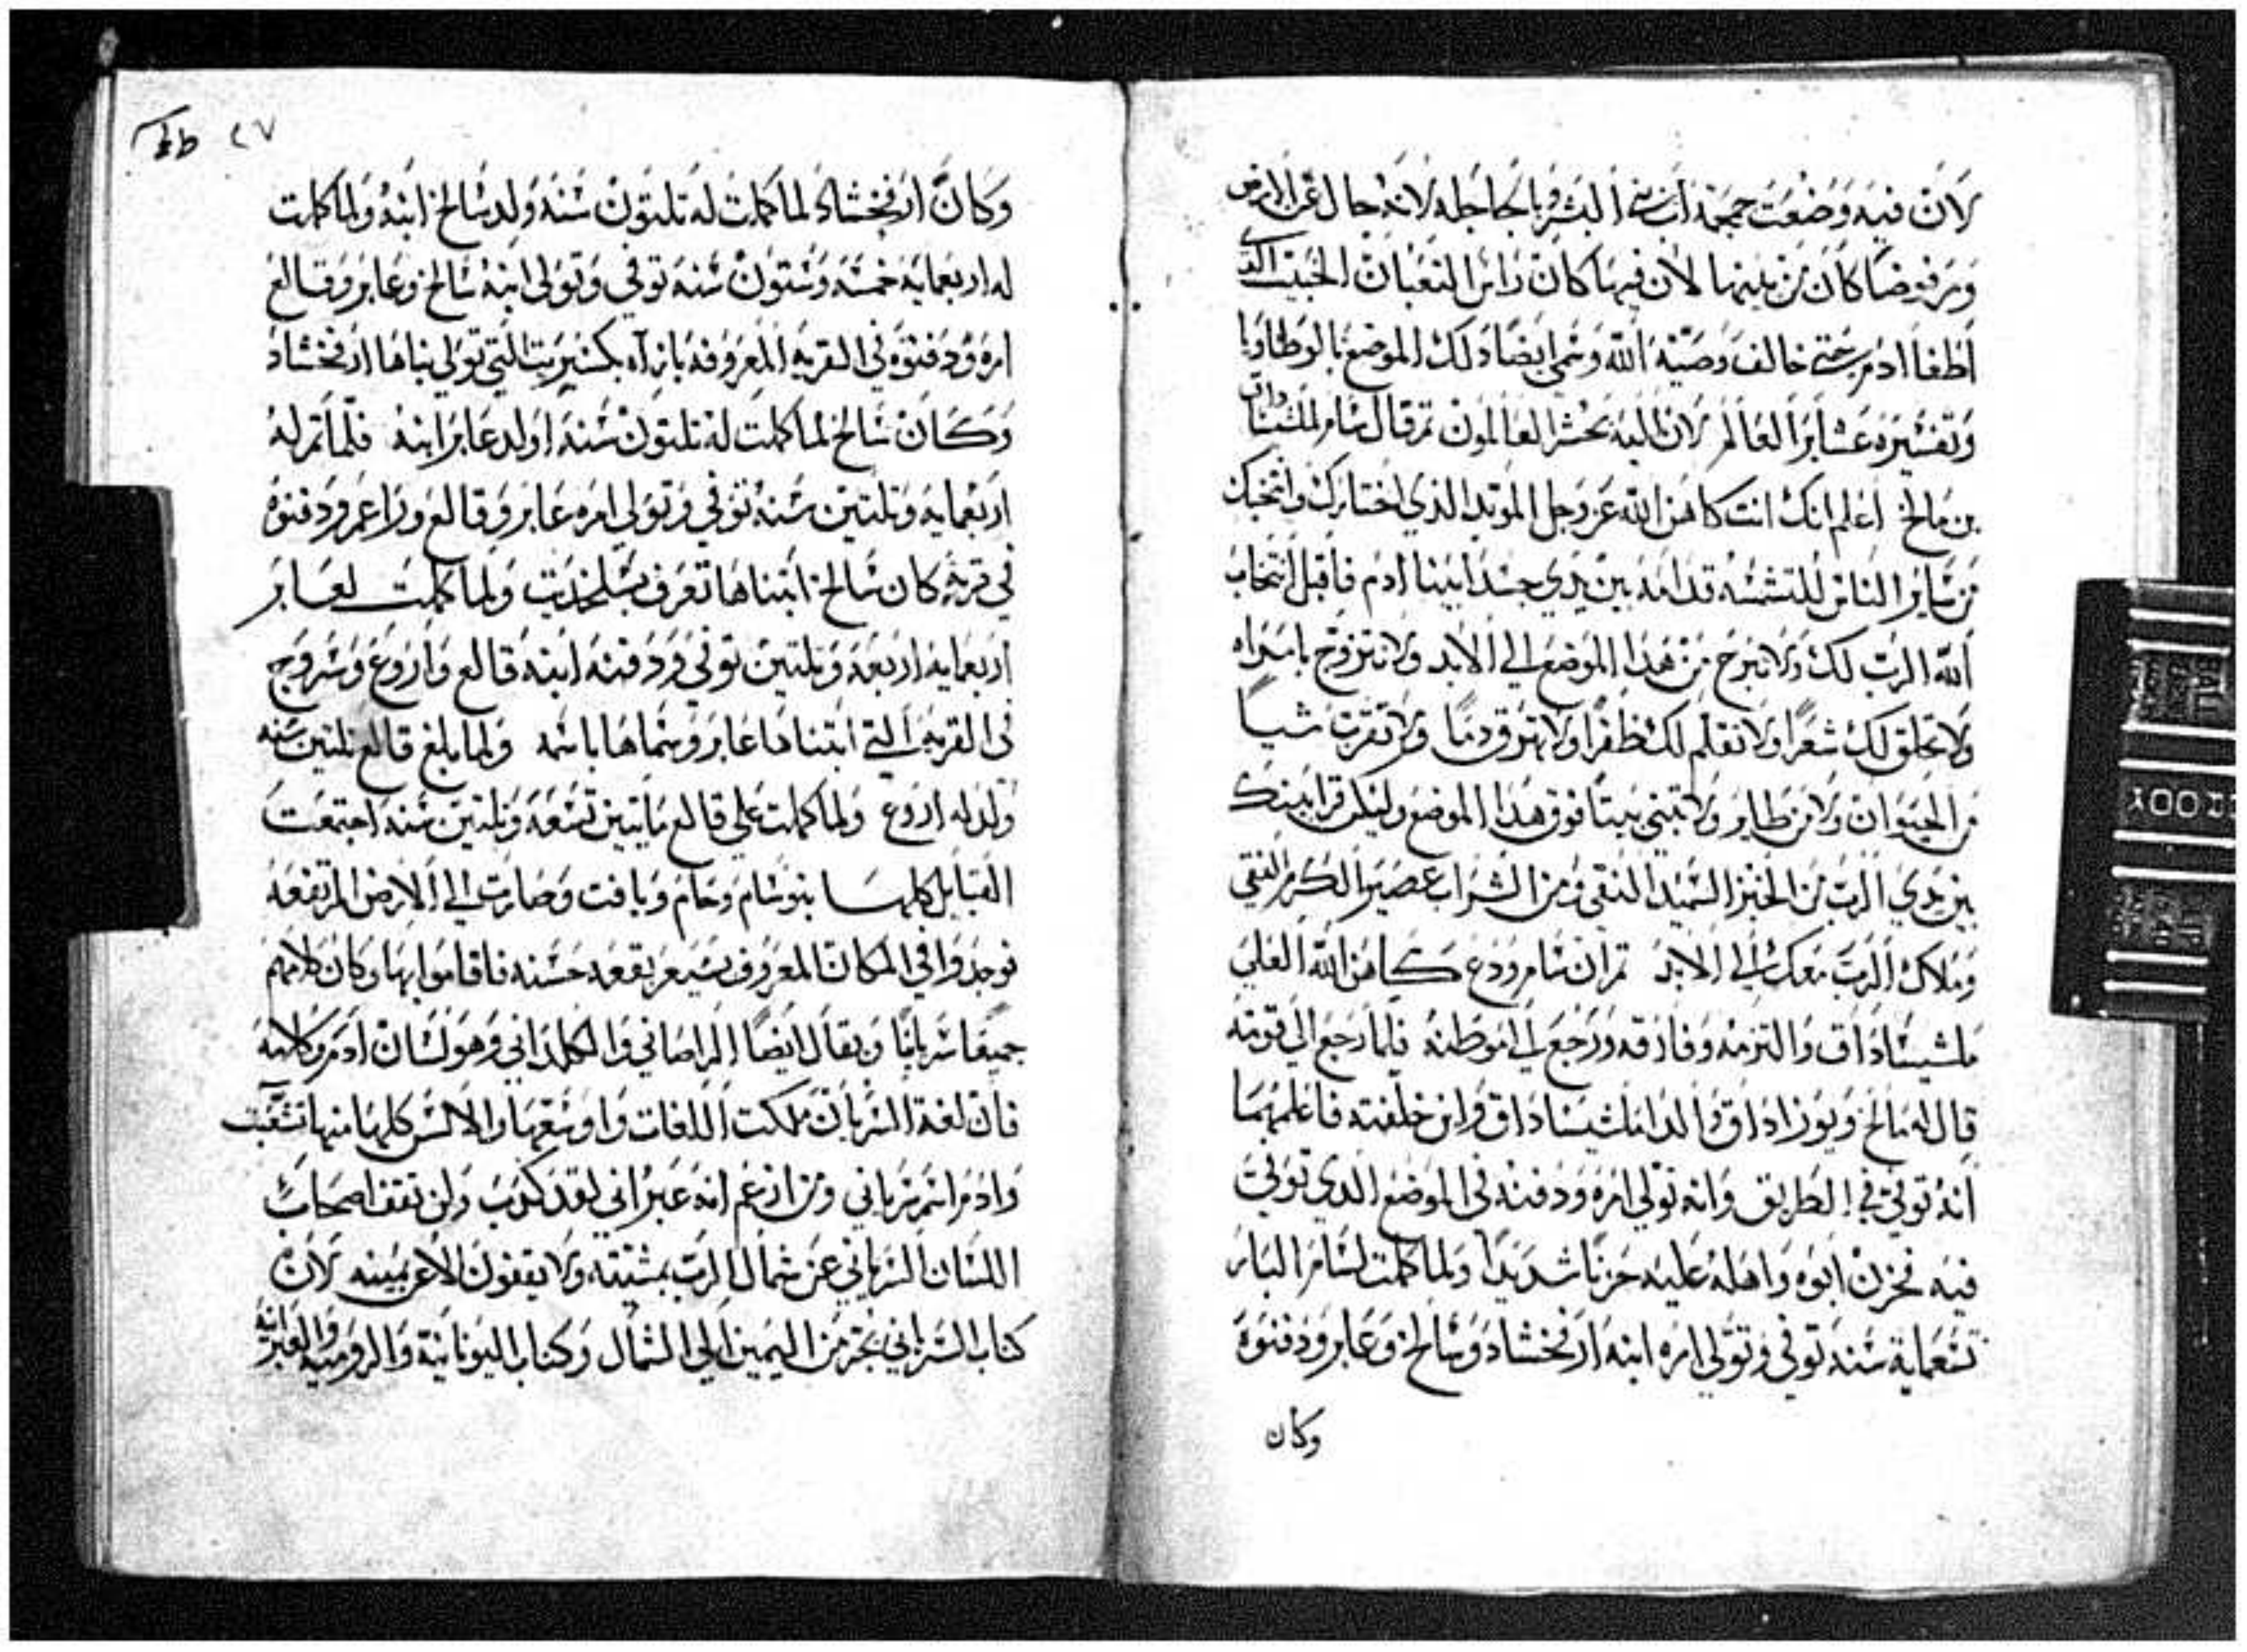 لان فيه وضعت جمجمة اب البشر وبالجاجله لانه جال عن الارض
ومرفوضا كان من بينها لان فيها كان راس التعبان الخبيت الذ
اطغا ادم حتي خالف وصيته الله وسمي ايضا دلك الموضع بالوطاويا
وتفسيره عشاير العالم لان اليه يحشر العالمون تم قال سام لملشيساداق
بن مالخ اعلم انك انت كاهن الله عز وجل الموبد الذي اختارك وانتخبك
من ساير الناس للتشمسه قدامه بين يدي جسد ابينا ادم فاقبل انتخاب
الله الرب لك ولا تبرح من هدا الموضع الي الابد ولا تتزوج بامراه
ولا تحلق لك شعرا ولا تقلم لك ظفرا ولا تهرق دما ولا تقرب شيا
من الحيوان ولا من طاير ولا تبني بيتا فوق هدا الموضع وليكن قرابينك
بين يدي الرب من الخبز السميد النقي ومن الشراب عصير الكرم النقي
وملاك الرب معك الي الابد تم ان سام ودع كاهن الله العلي
ملشيساداق والتزمه وفارقه ورجع الي موطنه فلما رجع الي قومه
قال له مالخ ويوزاداق والدا ملشيساداق واين خلفته فاعلمهما
انه توفي في الطريق وانه تولي امره ودفنه في الموضع الدي توفي
فيه فحزن ابوه واهله عليه حزنا شديدا ولما كملت لسام البار
تسعماية سنه توفي وتولي امره ابنه ارفخشاد وشالخ وعابر ودفنوه
وكان
٢٧
وكان ارفخشاد لما كملت له تلتون سنه ولد شالخ ابنه ولما كملت
له اربعمايه خمسه وستون سنه توفي وتولي ابنه شالخ وعابر وفالغ
امره ودفنوه في القريه المعروفه بازاه التي تولي بناها ارفخشاد
وكان شالخ لما كملت له تلتون سنه اولد عابر ابنه فلما تم له
اربعمايه وتلتين سنه توفي وتولي امره عابر وفالع وراعمر ودفنوه
في قريه كان شالخ ابتناها تعرف بشلخديت ولما كملت لعابر
اربعمايه اربعه وتلتين توفي ودفنه ابنه فالع واروع وسروج
في القريه التي ابتناها عابر وسماها باسمه ولما بلغ فالع تلتين سنه
ولد له اروع ولما كملت علي فالع مايتين تسعه وتلتين سنه اجتمعت
القبايل كلها بنو سام وحام ويافت وصارت الي الارض المرتفعه
فوجدوا في المكان المعروف بشيعر بقعه حسنه فاقاموا بها وكان كلامهم
جميعا سريانيا ويقال ايضا الراصاني والكلداني وهو لسان ادم وكلامه
فان لغة السريان ملكت اللغات واوسعها والالسن كلها منها تشعبت
وادم اسم سرياني ومن ازعم انه عبراني لقد كدب ولن تقف اصحاب
اللسان السرياني عن شمال الرب بمشيته ولا يقفون الا عن يمينه لان
كتاب السرياني يجر من اليمين الي الشمال وكتاب اليونانية والرومية والعبرانيه